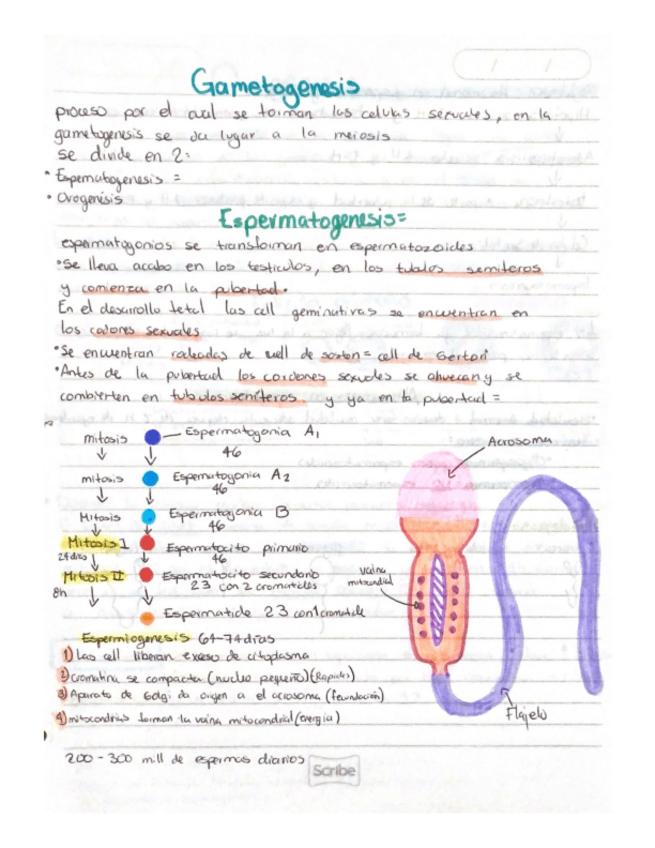 Gametogenesis
proceso por el cual se forman las celulas sexuales, en la
gametogenesis se da lugar a la meiosis
se divide en 2:
• Espermatogenesis =
• Ovogenesis
Espermatogenesis=
espermatogonios se transforman en espermatozoides
•Se lleva acabo en los testiculos, en los tubulos semiferos
y comienza en la pubertad.
En el desarrollo fetal las cell geminativas se encuentran en
los cadones sexuales
•Se encuentran rodeadas de cell de sosten = cell de Sertori
•Antes de la pubertad los cordones sexuales se ahuecan y se
combierten en tubulos semiferos y ya en la pubertad =
mitosis
Espermatogonia A1
46
mitosis
Espermatogonia A2
46
Mitosis
Espermatogonia B
46
Mitosis I
Espermatocito primario
24 dias
46
Mitosis II
Espermatocito secundario
8h
23 con 2 cromatides
Espermatide 23 con 1 cromatide
Acrosoma
vaina
mitocondrial
Flajelo
Espermiogenesis 64-74 dias
1) Las cell liberan exceso de citoplasma
2) cromatina se compacta (nucleo pequeño) (Rapidos)
3) Aparato de Golgi da origen a el acrosoma (fecundación)
4) mitocondrias forman la vaina mitocondrial (energia)
200 - 300 mill de espermas diarios
Scribe